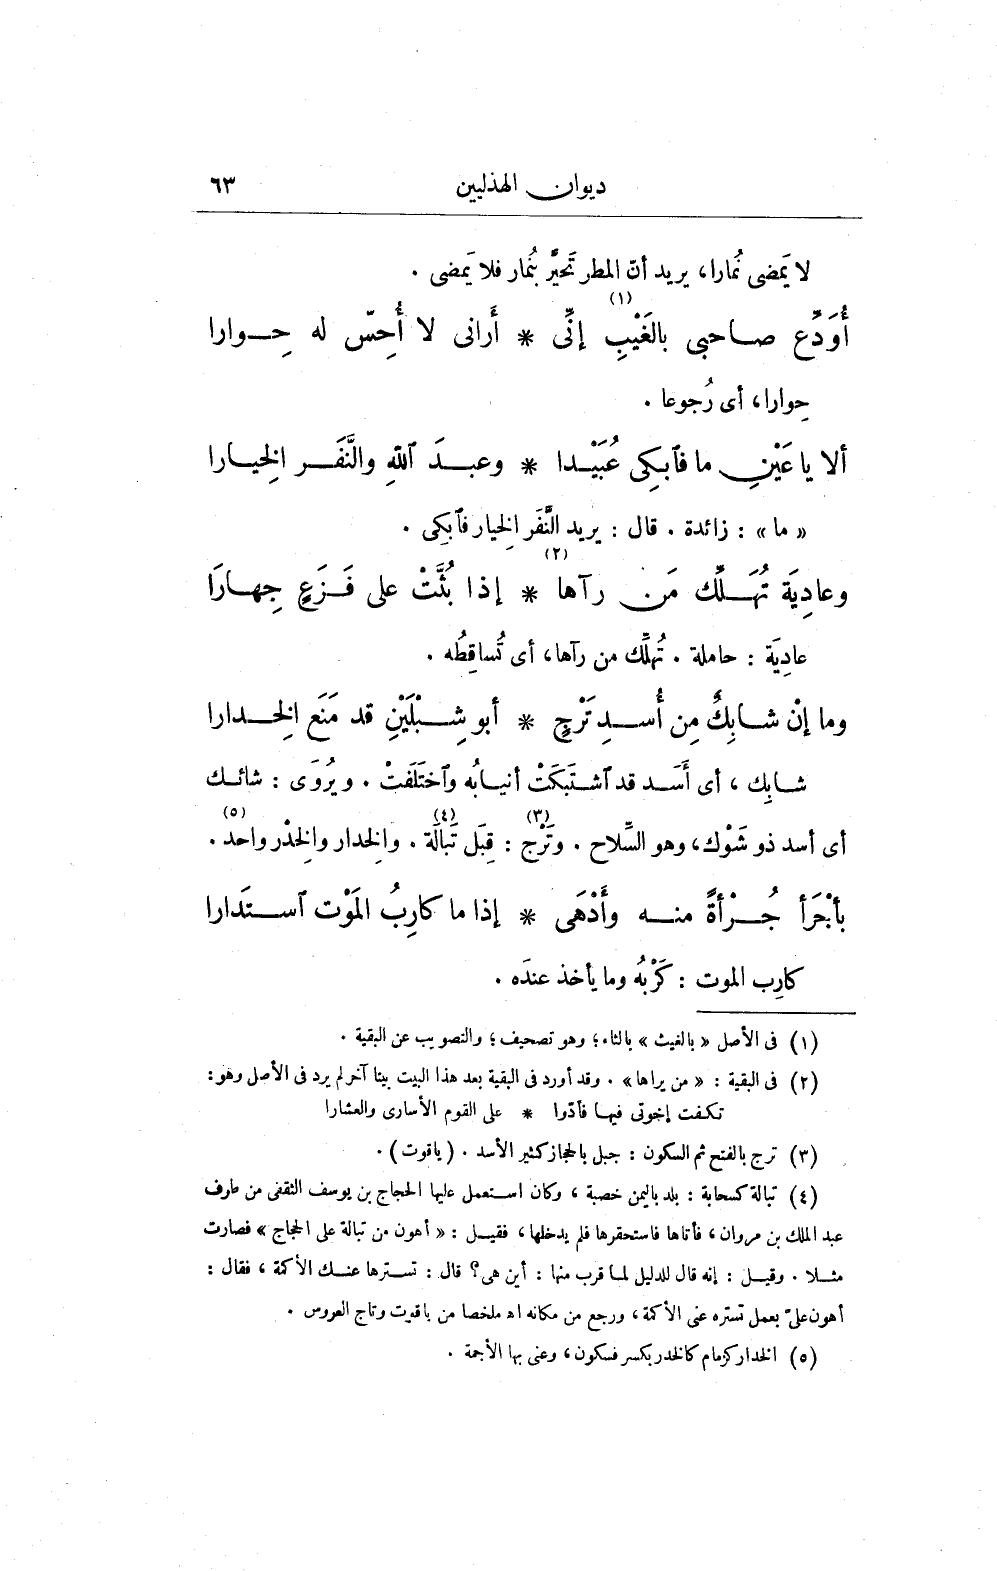 ديوان الهذليين ٦٣
لا يَمضى نُمارا، يريد أنّ المطر تَحيَّر بنُمار فلا يَمضى .
أُوَدِّع صاحبى بالغَيْبِ (١) إنِّى * أَرانى لا أُحِسّ له حِوارا
حِوارا، أى رُجوعا .
ألا يا عَيْنِ ما فٱبكِى عُبَيْدا * وعبدَ ٱللهِ والنَّفَر الخِيارا
« ما » : زائدة . قال : يريد النَّفَر الخِيار فٱبكِى .
وعادِيَة تُهَلِّك مَن رآها (٢) * إذا بُثَّتْ على فَزَعٍ جِهارَا
عادِيَة : حاملة . تُهلِّك من رآها، أى تُساقِطُه .
وما إنْ شابِكٌ مِن أُسدِ تَرْجٍ * أبو شِبْلَيْنِ قد مَنَع الخِدارا
شابِك ، أى أَسَد قد ٱشتَبكَتْ أنيابُه وٱختَلَفتْ . ويُروَى : شائك
أى أسد ذو شَوْك، وهو السِّلاح . وتَرْج (٣) : قِبَل تَبالَة (٤) . والخِدار والخِدْر واحد (٥) .
بأَجْرَأ جُرْأةً منه وأَدْهَى * إذا ما كارِبُ المَوْت ٱستَدارا
كارِب الموت : كَرْبُه وما يأخذ عندَه .
(١) فى الأصل « بالغيث » بالثاء؛ وهو تصحيف؛ والتصويب عن البقية .
(٢) فى البقية : « من يراها » . وقد أورد فى البقية بعد هذا البيت بيتا آخر لم يرد فى الأصل وهو:
تكفت إخوتى فيها فأدّوا * على القوم الأسارى والعشارا
(٣) ترج بالفتح ثم السكون : جبل بالحجاز كثير الأسد . (ياقوت) .
(٤) تبالة كسحابة : بلد باليمن خصبة ، وكان استعمل عليها الحجاج بن يوسف الثقفى من طرف
عبد الملك بن مروان، فأتاها فاستحقرها فلم يدخلها، فقيل : « أهون من تبالة على الحجاج » فصارت
مثلا . وقيل : إنه قال للدليل لما قرب منها : أين هى؟ قال : تسترها عنك الأكمة ، فقال :
أهون علىّ بعمل تستره عنى الأكمة، ورجع من مكانه اه ملخصا من ياقوت وتاج العروس .
(٥) الخدار كزمام كالخدر بكسر فسكون، وعنى بها الأجمة .